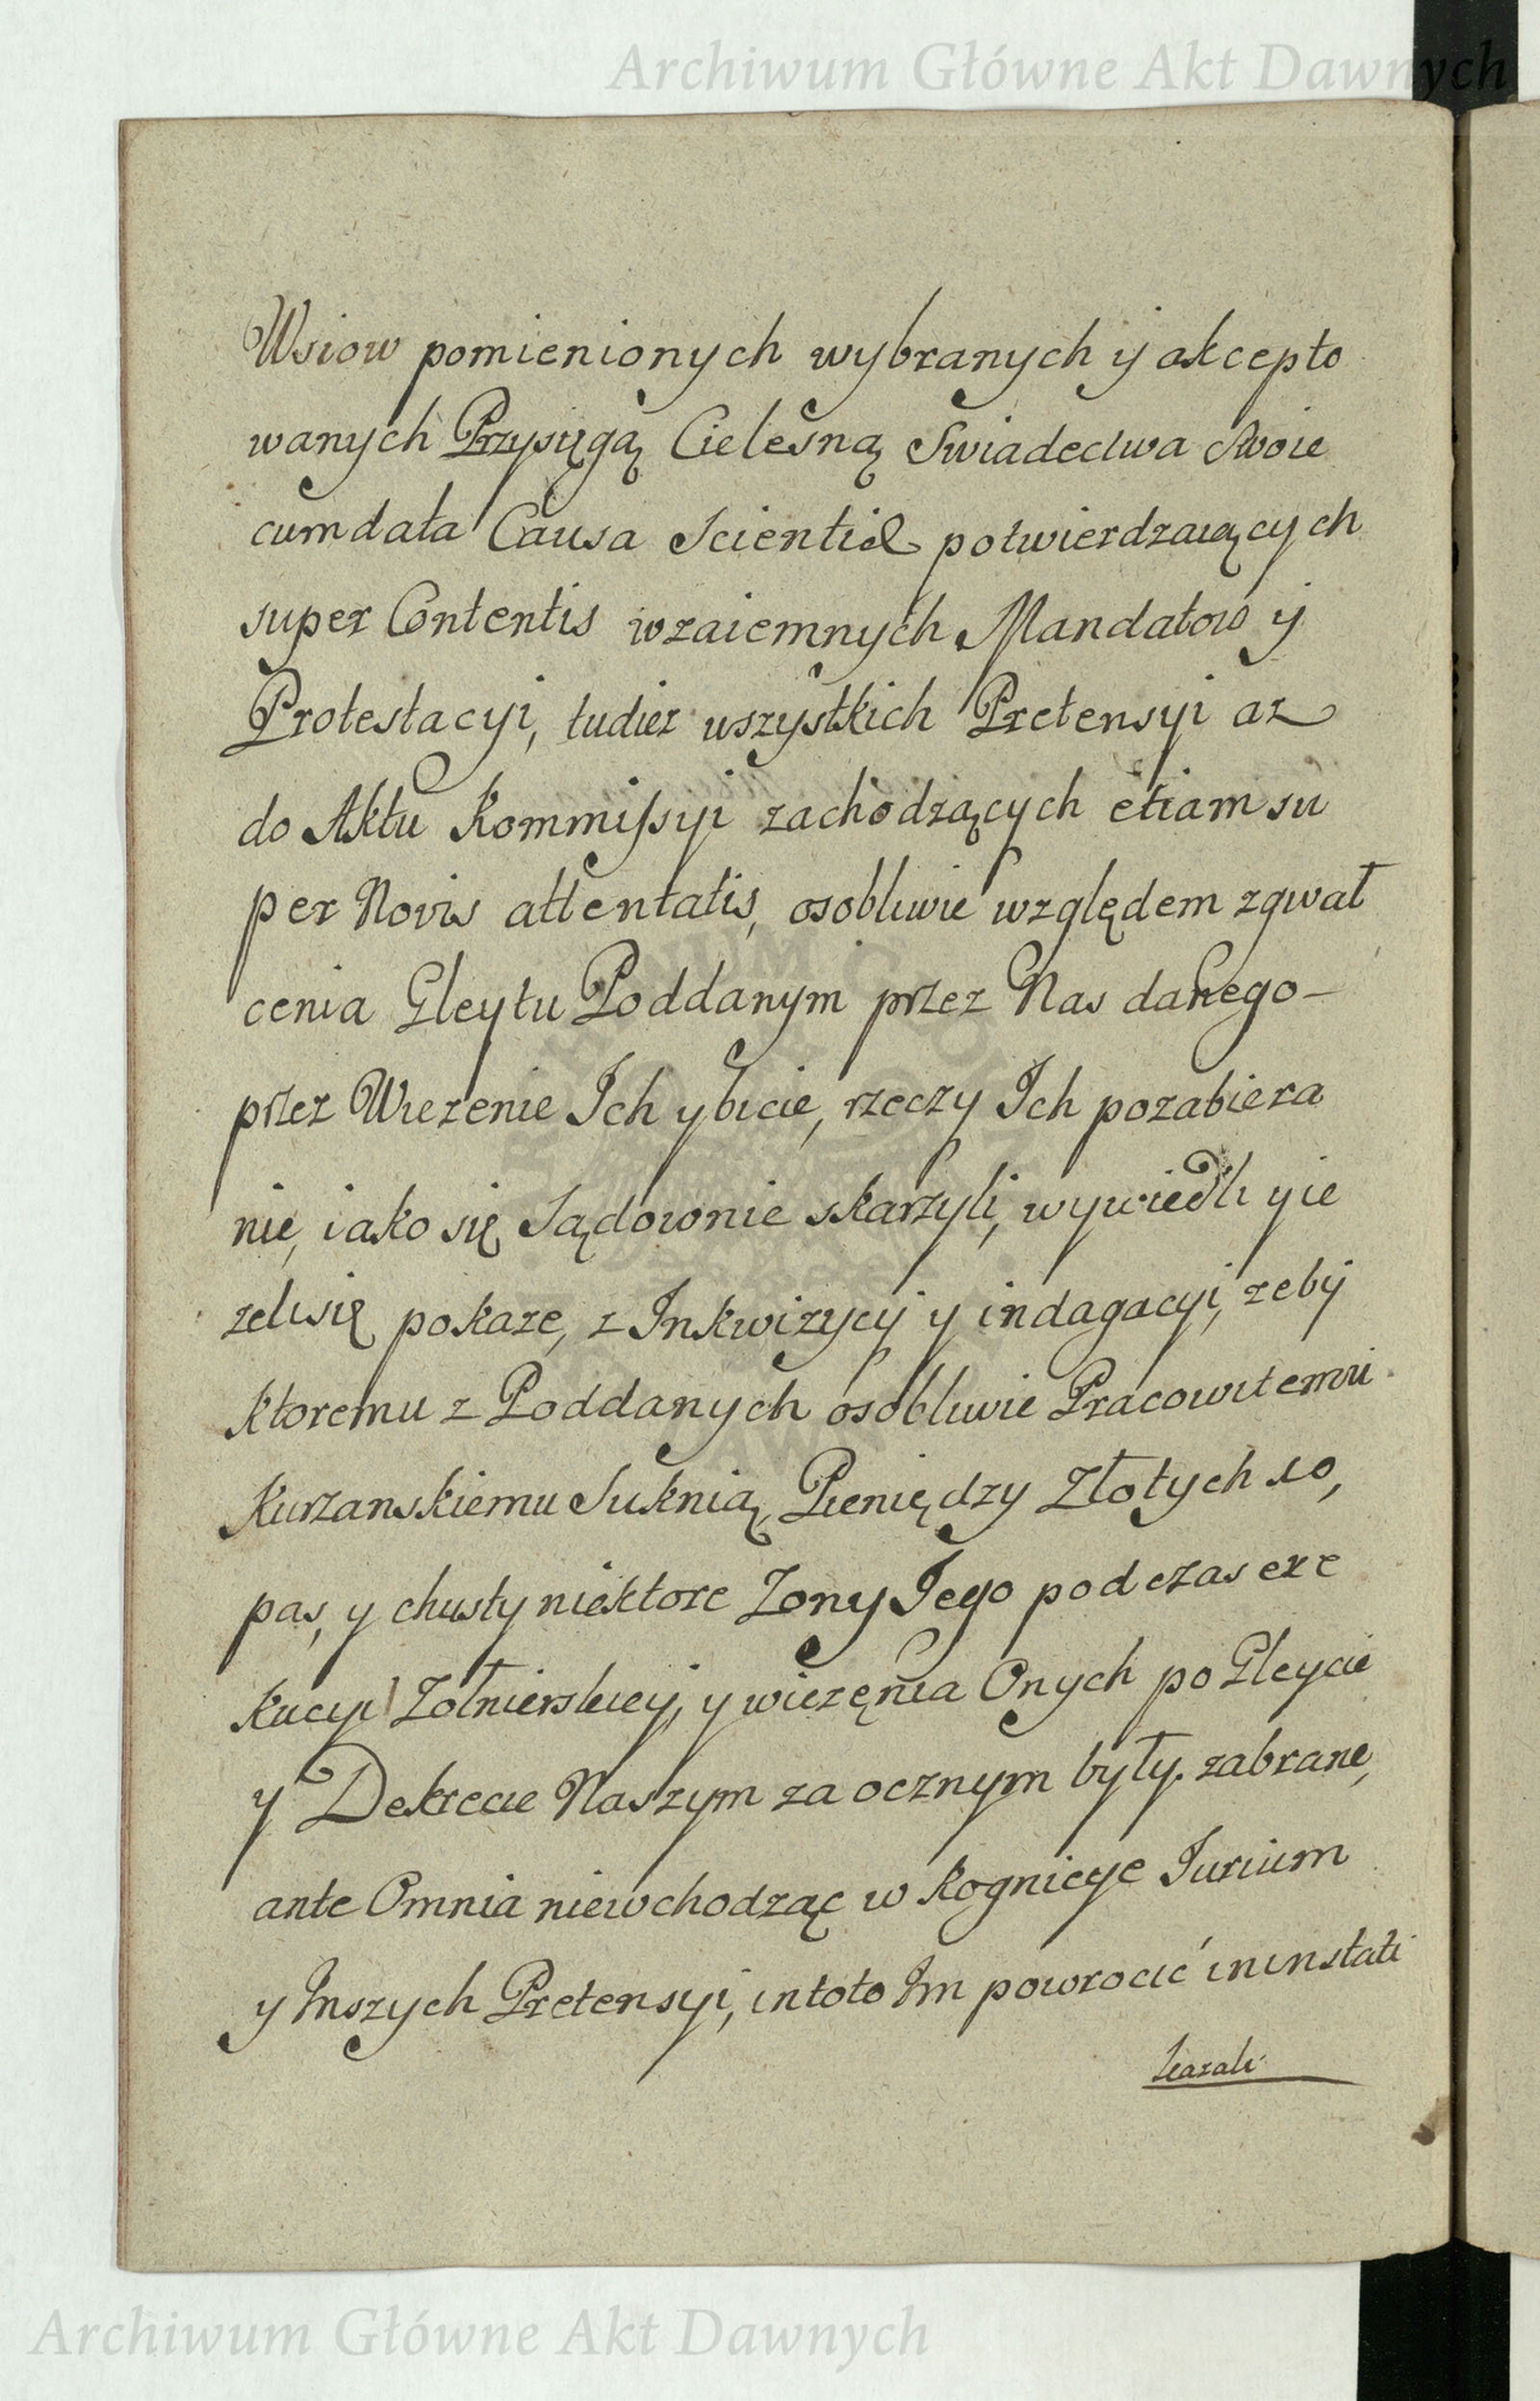 Archiwum Główne Akt Dawnych
Wsiow pomienionych wybranych ÿ akcepto
wanych Przysięgą Cielesną Swiadectwa Swoie
cum data Causa Scientiæ potwierdzaiących
super Contentis wzaiemnych Mandatow ÿ
Protestacyi, tudiez wszystkich Pretensyi az
do Aktu Kommissyi zachodzących etiam su
per Novis attentatis, osobliwie względem zgwał
cenia Gleytu Poddanym przez Nas danego –
przez Wiezenie Ich y bicie, rzeczy Ich pozabiera
nie, iako się Sądownie skarzyli, wywiedli y ie
zeli się pokaze, z Inkwizycyi y indagacyi, zeby
ktoremu z Poddanych osobliwie Pracowitemu
Kurzanskiemu Suknią, Pieniędzy Złotych 10,
pas, y chusty niektore Zony Jego podczas exe
kucyi Zołnierskiey, y wiezęnia Onych po Gleycie
y Dekrecie Naszym zaocznym były zabrane,
ante Omnia niewchodząc w Kognicye Jurium
y Inszych Pretensyi, in toto Im powrocić in instati
kazali
Archiwum Główne Akt Dawnych